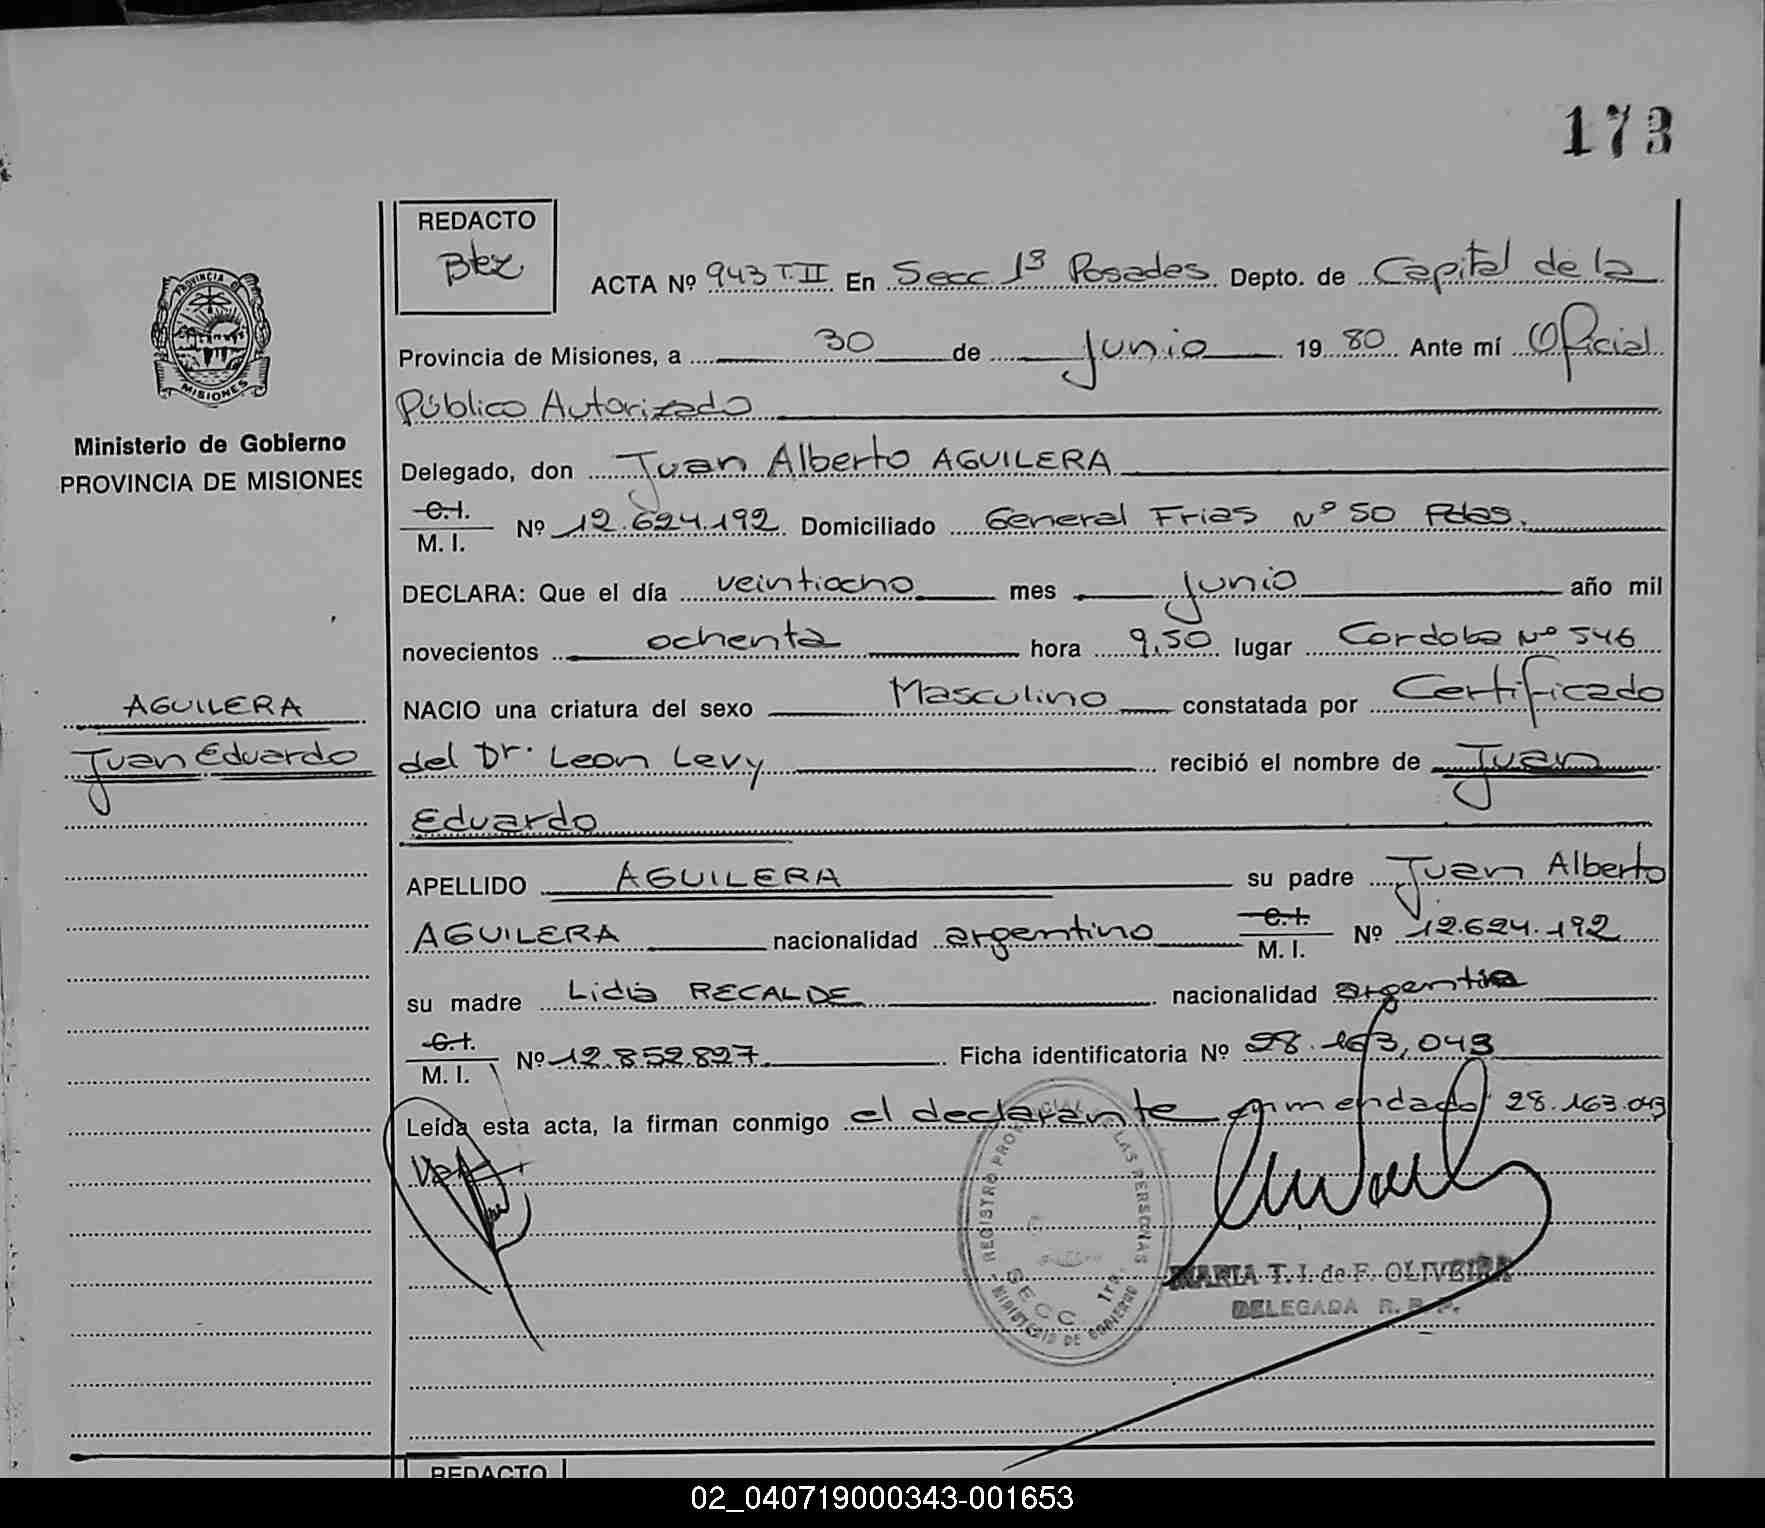 173
REDACTO
Btez
ACTA Nº 943 T.II En Secc 1ª Posadas Depto. de Capital de la
Provincia de Misiones, a 30 de Junio 19 80 Ante mí Oficial
Público Autorizado
Delegado, don Juan Alberto AGUILERA
C.I.
M. I. Nº 12.624.192 Domiciliado General Frias Nº 50 Pdas.
DECLARA: Que el día veintiocho mes junio año mil
novecientos ochenta hora 9,50 lugar Cordoba Nº 546
NACIO una criatura del sexo Masculino constatada por Certificado
del Dr. Leon Levy recibió el nombre de Juan
Eduardo
APELLIDO AGUILERA su padre Juan Alberto
AGUILERA nacionalidad argentino C.I.
M. I. Nº 12.624.192
su madre Lidia RECALDE nacionalidad argentina
C.I.
M. I. Nº 12.852.827 Ficha identificatoria Nº 28.163,043
Leida esta acta, la firman conmigo el declarante enmendado 28.163.043
PROVINCIA DE
MISIONES
Ministerio de Gobierno
PROVINCIA DE MISIONES
AGUILERA
Juan Eduardo
REGISTRO PROVINCIAL LAS PERSONAS
SECC 1ra.
MINISTERIO DE GOBIERNO
MARIA T. I. de F. OLIVEIRA
DELEGADA R. P. P.
REDACTO
02_040719000343-001653